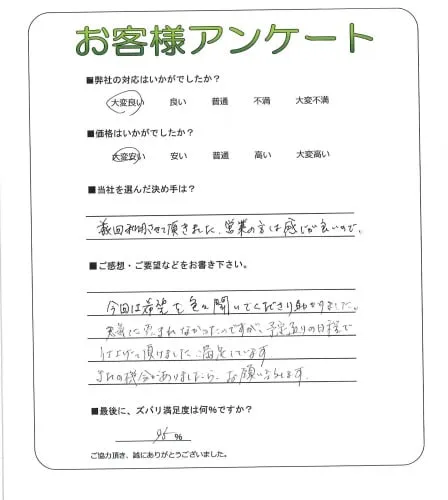 お客様アンケート
■弊社の対応はいかがでしたか？
大変良い 良い 普通 不満 大変不満
■価格はいかがでしたか？
大変安い 安い 普通 高い 大変高い
■当社を選んだ決め手は？
前回利用させて頂きました、営業の方は感じが良いので。
■ご感想・ご要望などをお書き下さい。
今回は希望を色々聞いてくださり助かりました。
天気に恵まれなかったのですが、予定通りの日程で
仕上げて頂けました 満足しています
またの機会がありましたら、お願い致します。
■最後に、ズバリ満足度は何％ですか？
95 ％
ご協力頂き、誠にありがとうございました。